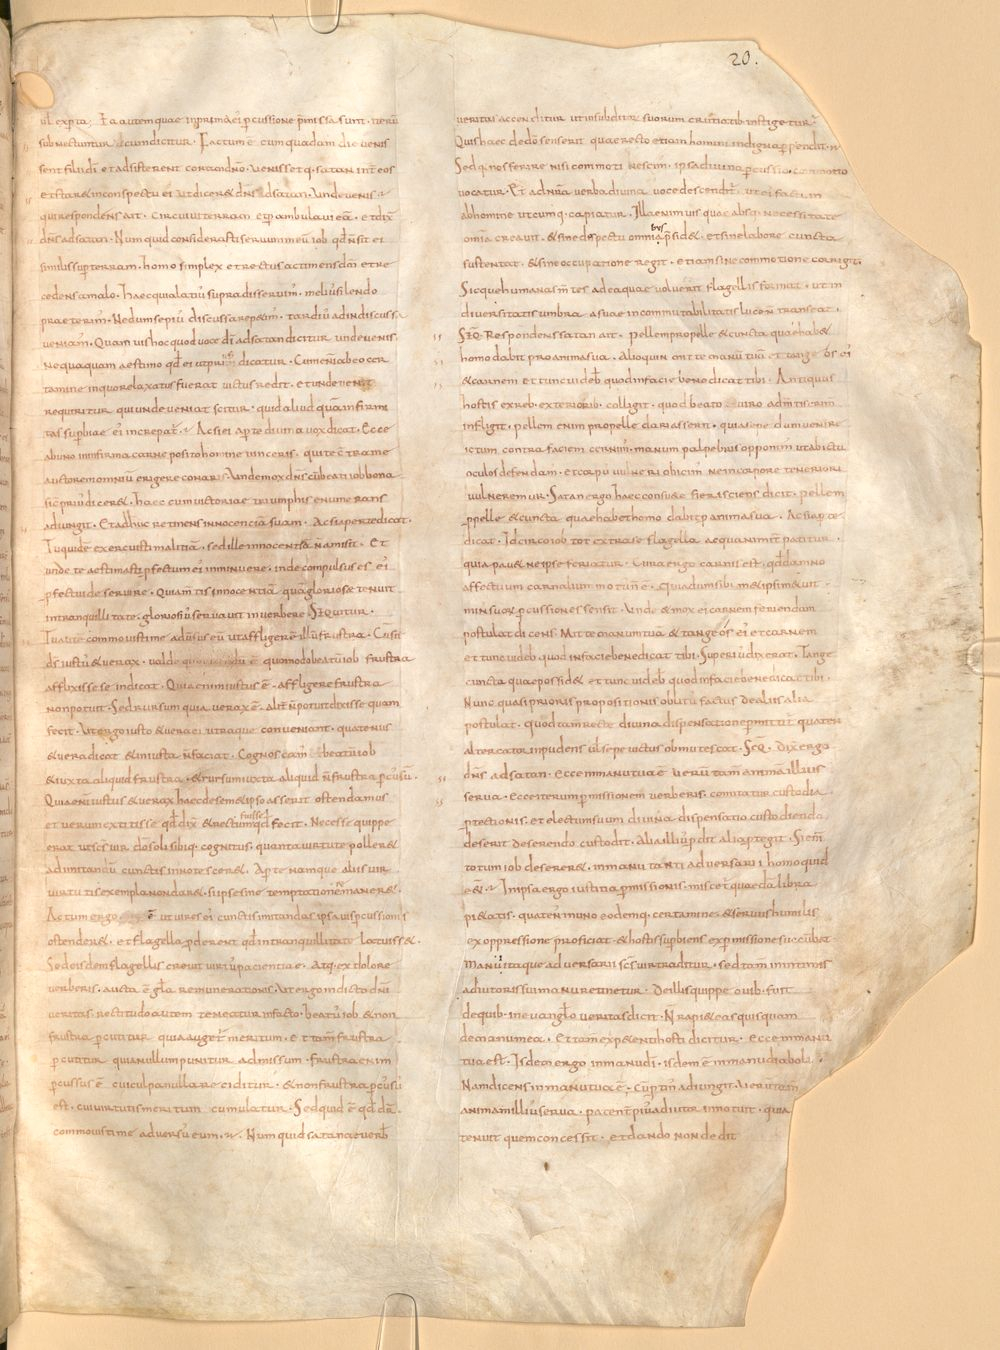 20.
expta; Ea autem quae inprima ei pcussione pmissa sunt. iterū
sub nectuntur dicitur. Factum ē cum quadam die venis
sent filii di et adsisterent coram dno. Venisset q. satan int eos
et staret in conspectu ei ut diceret dns ad satan. Unde venis
qui respondens ait. Circuivi terram et pambulavi eā. et dix
dns ad satan. Numquid considerasti servum meū iob qd n sit ei
similis sup terram. homo simplex et rectus ac timens dm et re
cedens a malo. haec quia latius supra disseruim. melius silendo
praeterim. Ne dum sepius discussa repetim. tardius ad indiscussa
veniam. Quamuis hoc quod voce di ad satan dicitur unde venis
Nequaquam aestimo qd ei ut prius dicatur. Cum eni ab eo cer
tamine in quo relaxatus fuerat victus redit. et unde venit
requiritur qui unde veniat scitur. quid aliud quam infirmi
tas supbiae ei increpat. Ac si ei apte divina vox dicat. Ecce
ab uno in infirma carne posito homine vinceris. qui te contra me
auctorem omniū erigere conaris. Unde mox dns cū beati iob bona
sic prius diceret. haec cum victoriae triumphis enumerans
adiungit. Et adhuc retinens innocenciā suam. Ac si apte dicat.
Tu quidē exercuisti malitiā. sed ille innocentiā n amisit. Et
unde te aestimasti pfectum ei inminuere. inde compulsus es ei
pfectui deservire. Quia mtis innocentiā quā gloriose tenuit
in tranquillitate. gloriosius servavit in verbere. Seqtur.
Tu autē commovisti me adūsus eū ut affligerē illū frustra. Cū sit
ds iustus et verax. valde quomodo beatū iob frustra
afflixisse se indicat. Quia enim iustus ē. affligere frustra
non potuit. Sed rursum quia verax ē. alit n potuit dixisse quam
fecit. Ut ergo iusto et veraci utraque conveniant. quatenus
et vera dicat et iniusta n faciat. Cognoscam beatū iob
et iuxta aliquid frustra. et rursum iuxta aliquid n frustra pcussū.
Quia eni iustus et verax haec de semet ipso asserit ostendamus
et verum extitisse qd dix et rectum fuisse qd fecit. Necesse quippe
erat ut scs vir do soli sibiq. cognitus. quanta virtute polleret
ad imitandū cunctis innotesceret. Apte namque aliis vir
virtutis exempla non daret. si ipse sine temptatione maneret.
Actum ergo ē ut vires ei cunctis imitandas ipsa vis pcussionis
ostenderet. et flagella pderent qd in tranquillitate latuisset.
Sed eisdem flagellis crevit virtus pacientiae. Atq. ex dolore
verberis. aucta ē gla remunerationis. Ut ergo in dicto dni
veritas. rectitudo autem teneatur in facto. beatus iob et non
frustra pcutitur quia auget meritum. et tam frustra
pcutitur quia nullum punitur admissum. frustra enim
pcussus ē cui culpa nulla reciditur. et non frustra pcussus
est. cui virtutis meritum cumulatur. Sed quid ē qd dn
commovisti me adversū eum. Numquid satanae verb
veritas accenditur ut in subditor suorum cruciatib instigetur
Quis haec de do senserit quae recto etiam homini indigna ppendit.
Sed q. nos ferire nisi commoti nescim. ipsa divina pcussio commotio
vocatur. Et ad nra verba divina voce descendit. ut ei factum
ab homine utcumq. capiatur. Illa enim vis quae absq. necessitate
omia creavit. et sine despectu omnibus psidet. et sine labore cuncta
sustentat. et sine occupatione regit. etiam sine commotione corrigit.
Sicque humanas mtes ad ea quae voluerit flagellis format. ut in
diversitatis umbra a suae incommutabilitatis luce n transeat.
SEQ. Respondens satan ait. pellem pro pelle et cuncta quae habet
homo dabit pro anima sua. Alioquin mitte manū tuā et tange os ei
et carnem et tunc videb quod in facie benedicat tibi. Antiquus
hostis ex reb. exteriorib. colligit. quod beato viro adm tis rim
infligit. pellem enim pro pelle dari asserit. quia sepe dum venire
ictum contra faciem cernim. manum palpebris opponim ut ab ictu
oculos defendam. et corpus vulneri obicim ne in corpore teneriori
vulneremur. Satan ergo haec consuete fieri sciens dicit. pellem
ppelle et cuncta quae habet homo dabit p anima sua. Ac si apte
dicat. Idcirco iob tot extra se flagella aequanimit patitur.
quia pavet ne ipse feriatur. Cura ergo carnis est. qd damno
affectuum carnalium motus n ē. Qui a dum sibi met ipsi metuit.
min suor pcussiones sensit. Unde et mox ei carnem feriendam
postulat dicens. Mitte manum tuā et tange os ei et carnem
et tunc videb quod in facie benedicat tibi. Superius dixerat. Tange
cuncta quae possidet et tunc videb quod in facie benedicat tibi.
Nunc quasi prioris propositionis oblitus factus de aliis alia
postulat. quod tam recte divina dispensatione pmittitur quaten
altercator inpudens vel sepe victus obmutescat. SEQ. Dix ergo
dns ad satan. Ecce in manu tua ē verū tam animā illius
serva. Ecce iterum pmissionem verberis. comitatur custodia
ptectionis. et electum suum divina dispensatio custodiendo
deserit deserendo custodit. Alia illius pdit alia ptegit. Si eni
totum iob desereret. in manu tanti adversarii homo quid
eēt. In ipsa ergo iustitia pmissionis. miscet quaedā libra
pietatis. quaten in uno eodemq. certamine. et servus humilis
ex oppressione proficiat. et hostis supbiens ex pmissione succūbat.
Manui itaque adversarii scs vir traditur. sed tam in intimis
adiutoris sui manu retinetur. De illis quippe ovib. fuit
de quib. in evanglo veritas dicit. N rapiet eas quisquam
de manu mea. Et tam expetenti hosti dicitur. Ecce in manu
tua est. Isdem ergo in manu di. isdem ē in manu diaboli.
Nam dicens in manu tua ē. Cū ptin adiungit. Verū tam
animam illius serva. patent pius adiutor innotuit. quia
tenuit quem concessit. et dando non dedit